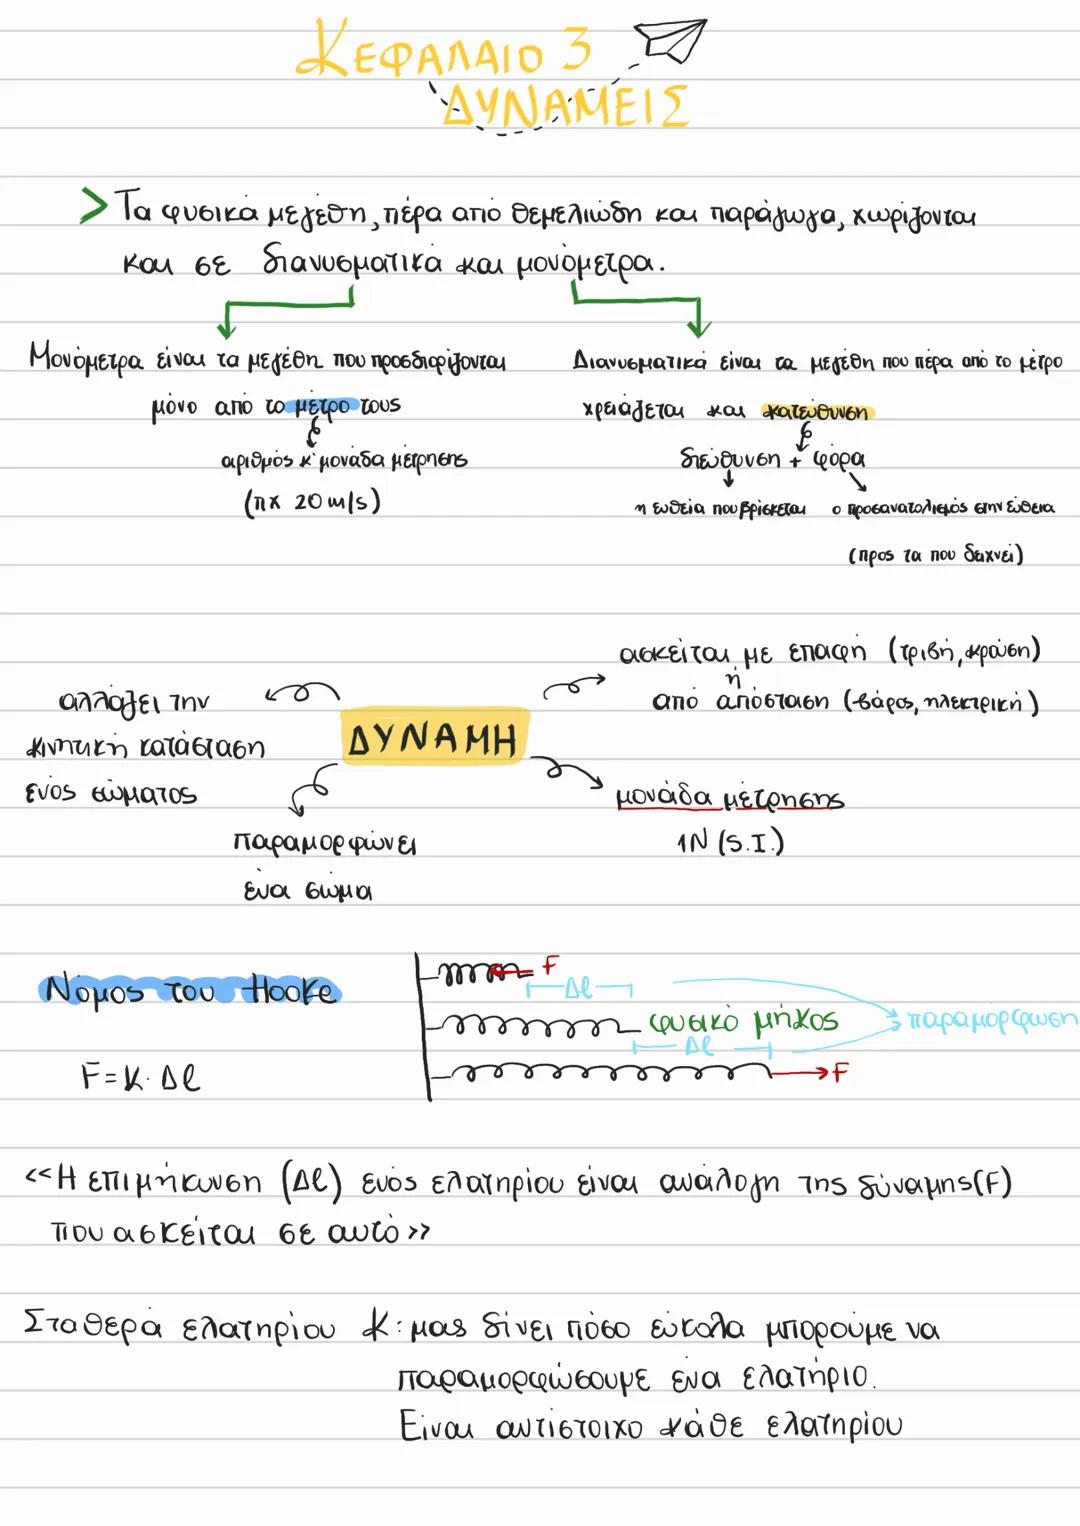 ΚΕΦΑΛΑΙΟ 3
ΔΥΝΑΜΕΙΣ
> Τα φυσικά μεγέθη, πέρα από θεμελιώδη και παράγωγα, χωρίζονται
και σε διανυσματικά και μονόμετρα.
Μονόμετρα είναι τα μεγέθη που προσδιορίζονται
μόνο από το μέτρο τους
αριθμός κ' μονάδα μέτρησης
(πχ 20 m/s)
Διανυσματικά είναι τα μεγέθη που πέρα από το μέτρο
χρειάζεται και κατεύθυνση
διεύθυνση + φόρα
η ευθεία που βρίσκεται
ο προσανατολισμός στην ευθεία
(προς τα που δειχνεί)
ασκείται με επαφή (τριβή, κρούση)
ή
από απόσταση (βάρος, ηλεκτρική)
αλλάζει την
κινητική κατάσταση
ενός σώματος
ΔΥΝΑΜΗ
μονάδα μέτρησης
1N (S.I.)
παραμορφώνει
ένα σώμα
Νόμος του Hooke
F = K · Δl
F
Δl
φυσικό μήκος
παραμορφωση
Δl
F
<<Η επιμήκυνση (Δl) ενός ελατηρίου είναι ανάλογη της δύναμης (F)
που ασκείται σε αυτό>>
Σταθερά ελατηρίου K: μας δίνει πόσο εύκολα μπορούμε να
παραμορφώσουμε ένα ελατήριο.
Είναι αντίστοιχο κάθε ελατηρίου